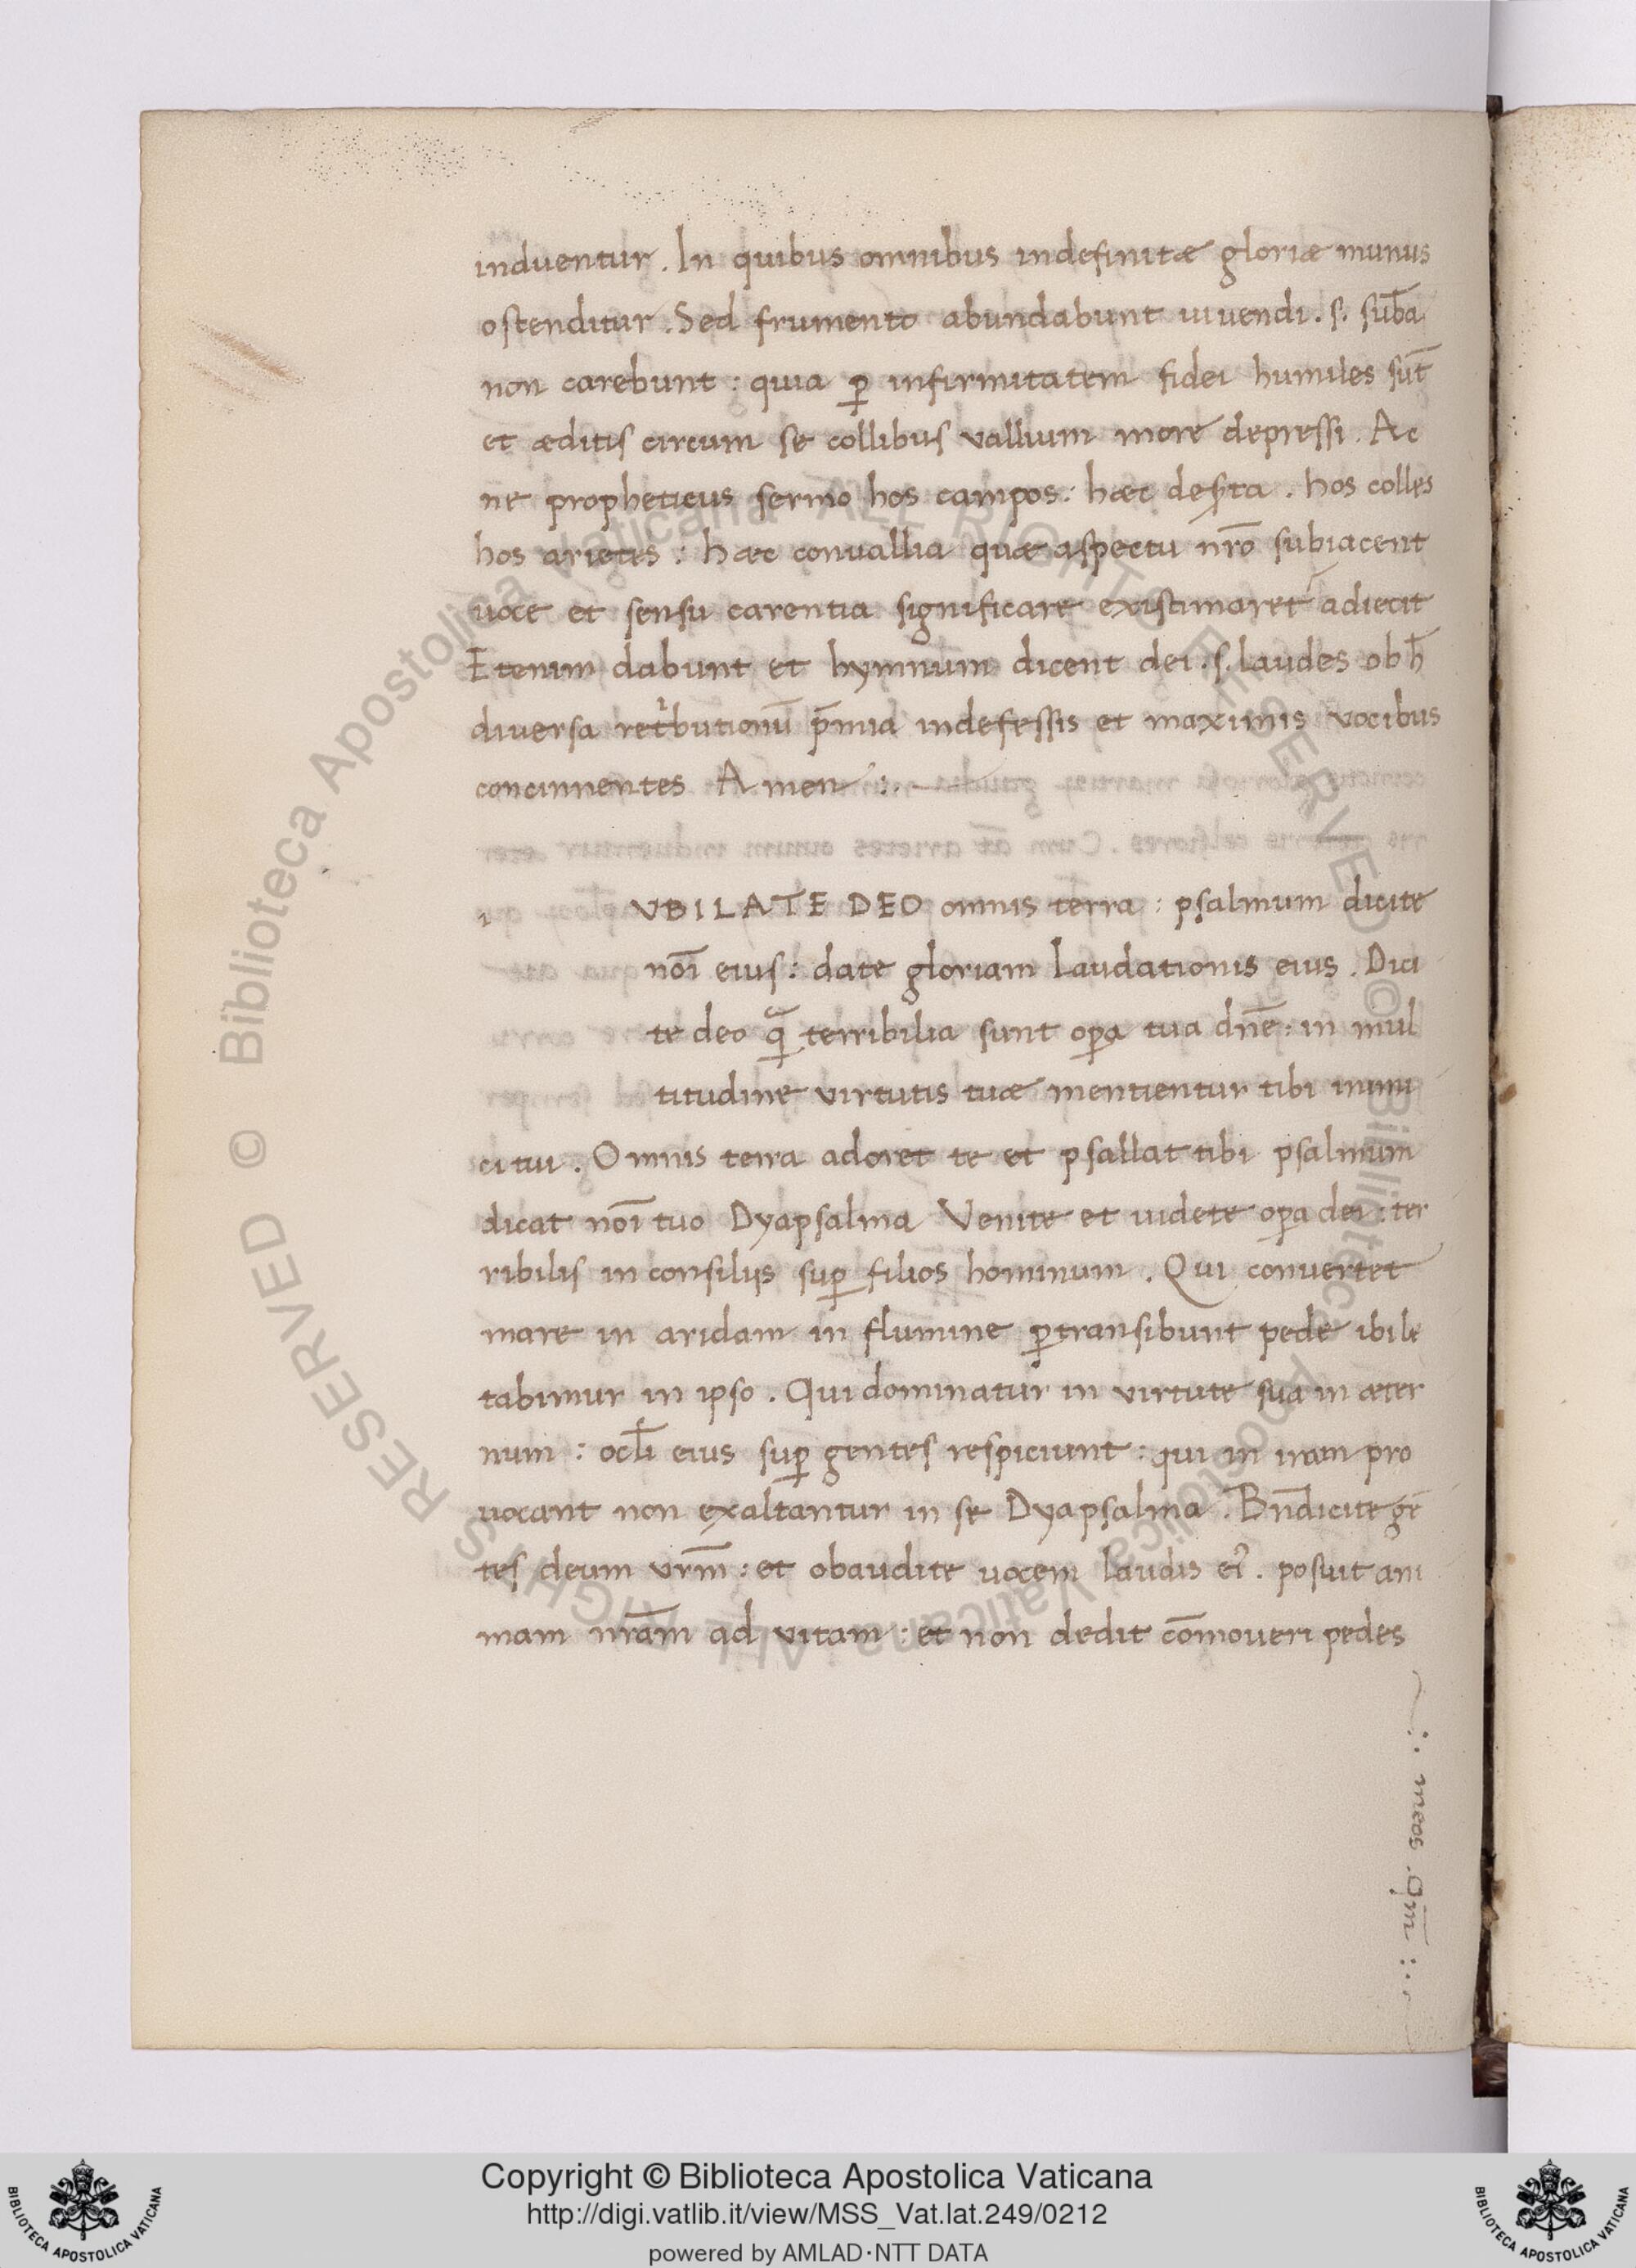 induentur. In quibus omnibus indefinitæ gloriæ munus
ostenditur. Sed frumento abundabunt uiuendi. s. sub̄a
non carebunt: quia ꝑ infirmitatem fidei humiles sūt
et æditis circum se collibus vallium more depressi. Ac
ne propheticus sermo hos campos: hæc des̄ta. hos colles
hos arietes: hæc conuallia quæ aspectu nr̄o subiacent
uoce et sensu carentia significare existimaret adiecit
Etenim dabunt et hymnum dicent dei. s. laudes ob h̄
diuersa retͥbutionū p̄mia indefessis et maximis vocibus
concinnentes Amen:.
i VBILATE DEO omnis terra: psalmum dicite
nōi eius: date gloriam laudationis eius. Dici
te deo qᷓ terribilia sunt oꝑa tua dn̄e: in mul
titudine virtutis tuæ mentientur tibi inimi
ci tui. Omnis terra adoret te et psallat tibi psalmum
dicat nōi tuo Dyapsalma Venite et uidete oꝑa dei: ter
ribilis in consiliis suꝑ filios hominum. Qui conuertet
mare in aridam in flumine ꝑtransibunt pede ibi le
tabimur in ipso. Qui dominatur in virtute sua in æter
num: ocl̄i eius suꝑ gentes respiciunt: qui in iram pro
uocant non exaltantur in se Dyapsalma. Bn̄dicite gē
tes deum vr̄m: et obaudite uocem laudis ei᾿. posuit ani
mam nr̄am ad vitam: et non dedit cōmoueri pedes
meos
Copyright © Biblioteca Apostolica Vaticana
http://digi.vatlib.it/view/MSS_Vat.lat.249/0212
powered by AMLAD·NTT DATA
BIBLIOTECA APOSTOLICA VATICANA
BIBLIOTECA APOSTOLICA VATICANA
Biblioteca Apostolica Vaticana ALL RIGHTS RESERVED © Biblioteca Apostolica Vaticana ALL RIGHTS RESERVED ©